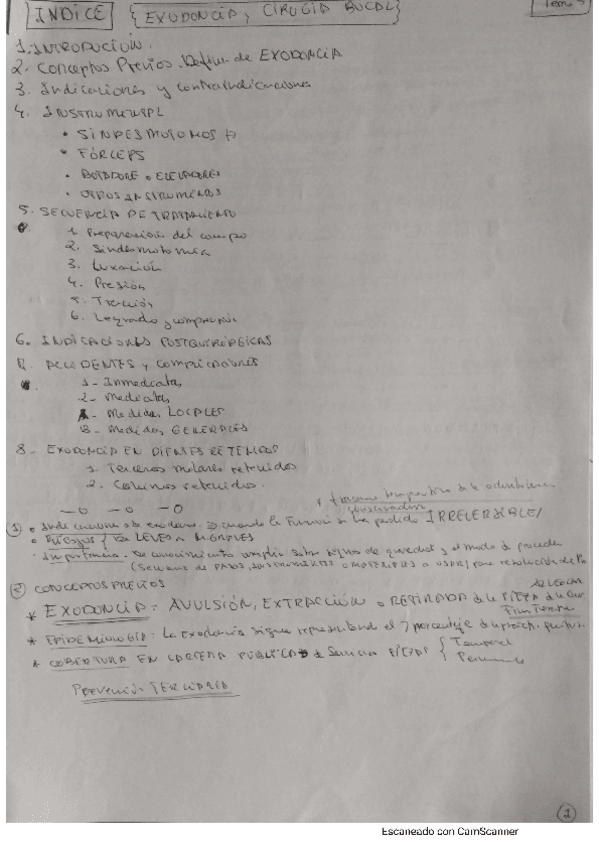 INDICE { EXODONCIA y CIRUGIA BUCAL } Tema
1. INTRODUCIÓN.
2. Conceptos Previos. de EXODONCIA
3. Indicaciones y contraindicaciones
4. INSTRUMENTAL
• SINDESMOTOMOS
• FÓRCEPS
• BOTADORES o ELEVADORES
• OTROS INSTRUMENTOS
5. SECUENCIA DE TRATAMIENTO
1. Preparación del campo
2. Sindesmotomia
3. Luxación
4. Presión
5. Tracción
6. Legrado y compresión
6. INDICACIONES POSTQUIRÚRGICAS
ACCIDENTES y COMPLICACIONES
1- Inmediatas
2- Mediatas
- Medidas LOCALES
B- Medidas GENERALES
8- EXODONCIA EN DIENTES RETENIDOS
1. Terceros molares retenidos
2. Caninos retenidos.
—o —o —o
* fracaso de la odontología conservadora
① • cuando la Función se ha perdido IRREVERSIBLE/
• Riesgos { De LEVES a GRAVES
• Importancia: conocimiento amplio sobre y el modo de proceder
(Secuencia de PASOS, INSTRUMENTOS o MATERIALES a USAR) para
② CONCEPTOS PREVIOS
* EXODONCIA: AVULSIÓN, EXTRACCIÓN o RETIRADA de la PIEZA de
* EPIDEMIOLOGIA: La exodoncia sigue representando el 7 porcentaje de
* COBERTURA EN CARTERA PÚBLICA de Servicios { Temporal
PREVENCIÓN TERCIARIA
1
Escaneado con CamScanner